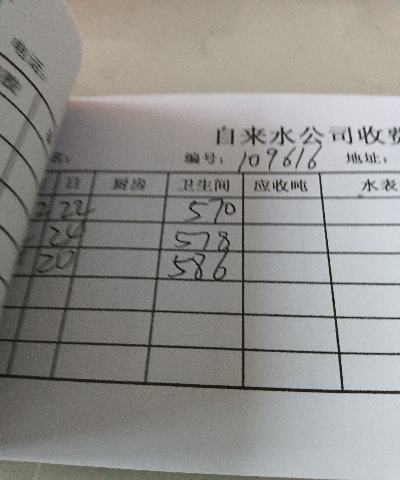 自来水公司收费
编号: 109616 地址:
日 厨房 卫生间 应收吨 水表
22 570
24 578
20 586